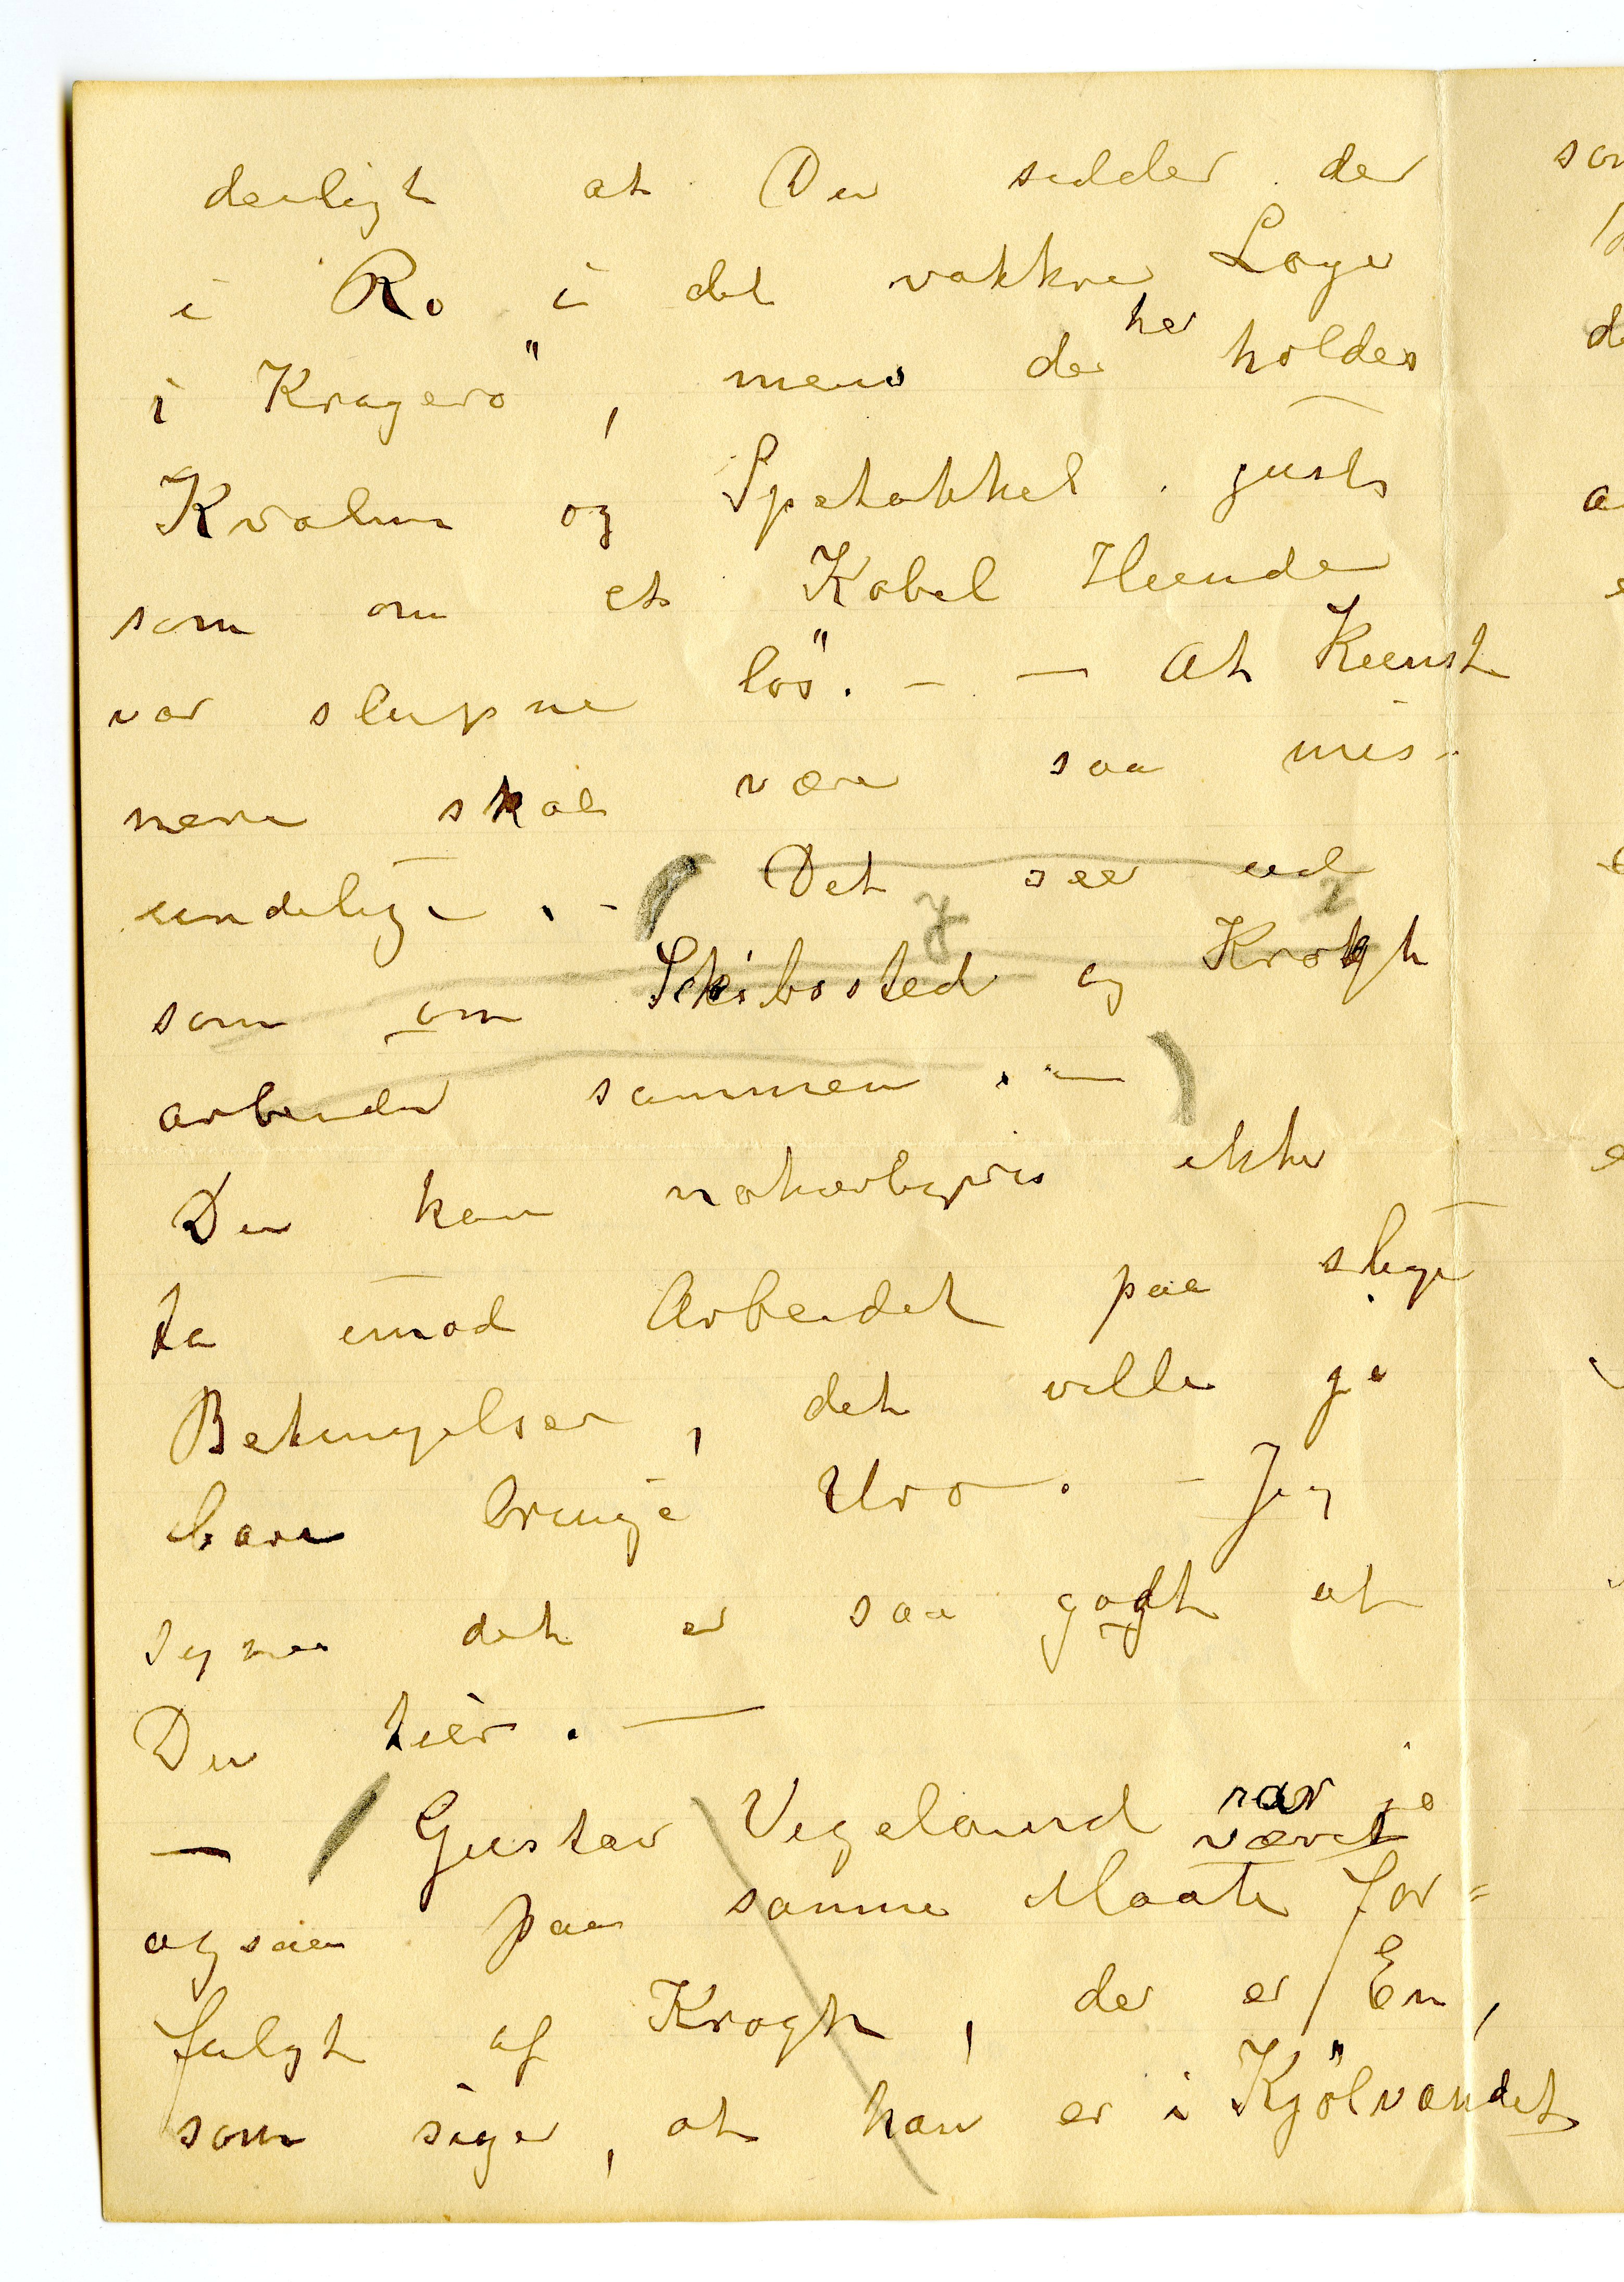 deiligt at Du sidder der
i Ro i det vakkre Loge
i Kragerö, mens der her holdes
Kvalm og Spetakkel. just
som om et Kobel Hunde
var slupne lös. – – At Kunst
nere skal være saa mis-
undelige. – Det seer ud
som om Skibsted og Krogh
arbeider sammen. –
Du kan naturligvis ikke
ta imod Arbeidet paa slige
Betingelser, det ville jo
bare bringe Uro. – Jeg
synes det er saa godt at
Du tier. —
— Gustav Vigeland har jo været
ogsaa paa samme Maate for=
fulgt af Krogh, der er En,
som siger, at han er i Kjölvandet